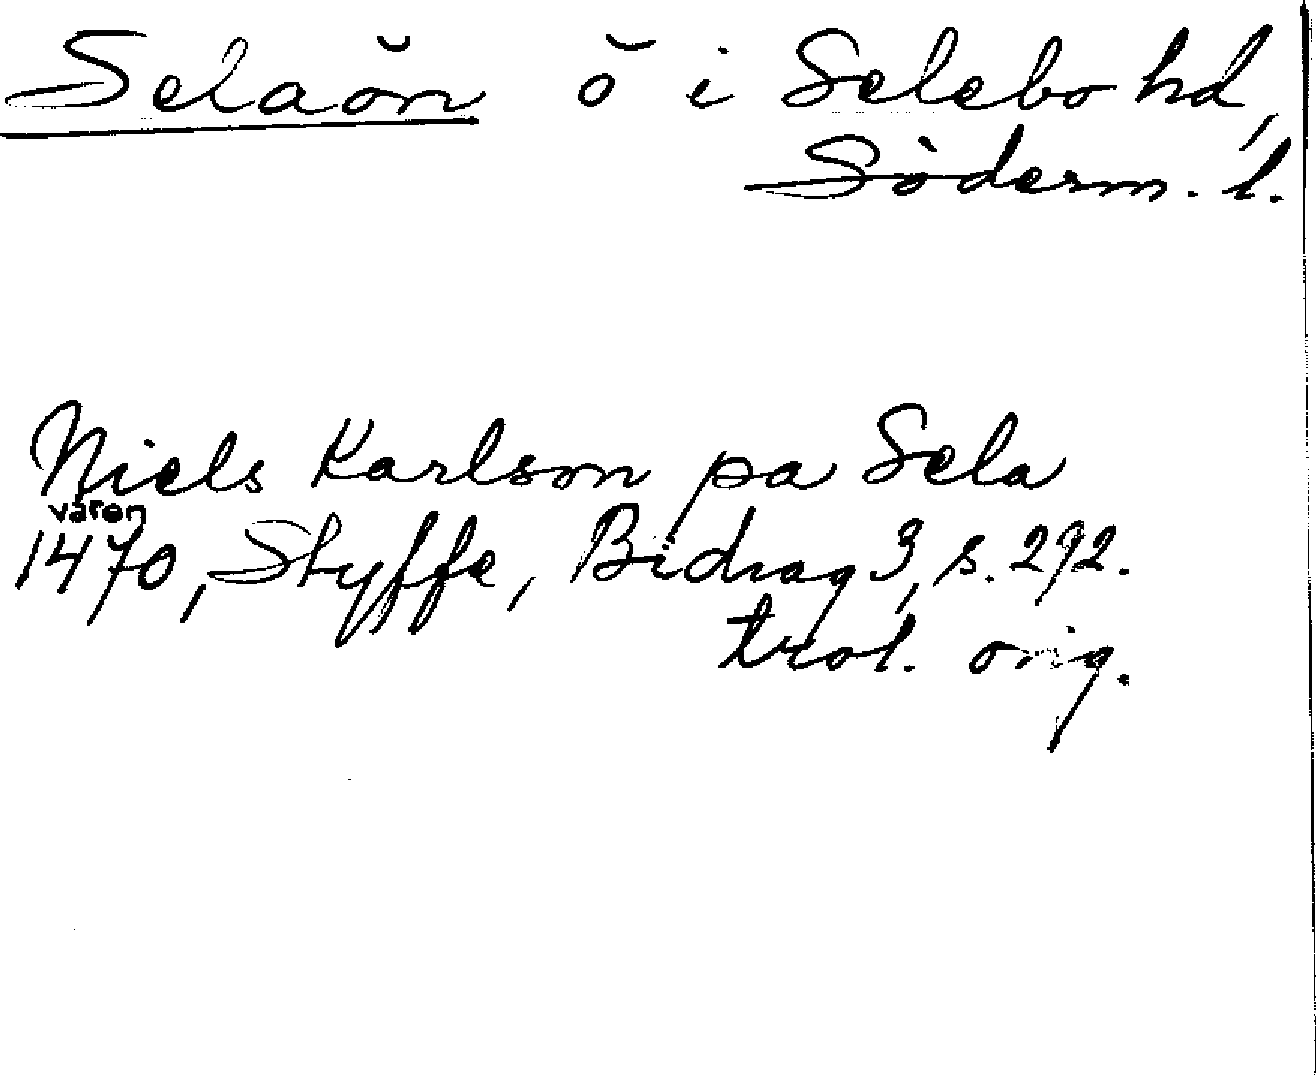 Selaön ö i Selebo hd,
Söderm. l.
Niels Karlson pa Sela
våren
1470, Styffe, Bidrag 3, s. 292.
trol. orig.